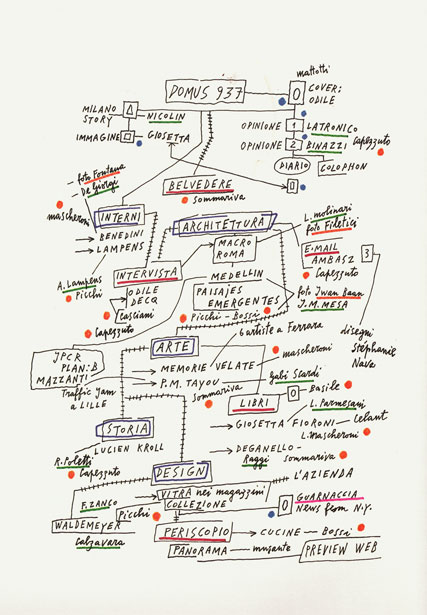 mattotti
DOMUS 937
0
COVER:
ODILE
MILANO
STORY
NICOLIN
OPINIONE 1 LATRONICO
IMMAGINE GIOSETTA
OPINIONE 2 BINAZZI Capezzuto
DIARIO COLOPHON
foto Fontana
De Giorgi
BELVEDERE
0
sommariva
mascheroni
INTERNI
ARCHITETTURA
L. molinari
foto Filetici
BENEDINI
LAMPENS
MACRO
ROMA
E-MAIL
AMBASZ
3
INTERVISTA
Capezzuto
A. Lampens
Picchi
ODILE
DECQ
MEDELLIN
foto Iwan Baan
J.M. MESA
Casciani
PAISAJES
EMERGENTES
Capezzuto
Picchi - Bossi
6 artiste a Ferrara
disegni
Stéphanie
Nava
JPCR
PLAN:B
MAZZANTI
ARTE
MEMORIE VELATE
mascheroni
P.M. TAYOU
Gabi Scardi
Traffic Jam
a LILLE
sommariva
0 Basile
LIBRI
L. Parmesani
STORIA
GIOSETTA FIORONI
Celant
L. Mascheroni
LUCIEN KROLL
DEGANELLO -
Raggi sommariva
R. Poletti
Capezzuto
DESIGN
L'AZIENDA
VITRA nei magazzini
COLLEZIONE
F. ZANCO
Picchi
0 GUARNACCIA
News from N.Y.
WALDEMEYER
Calzavara
PERISCOPIO
CUCINE - Bossi
PANORAMA - musante
PREVIEW WEB